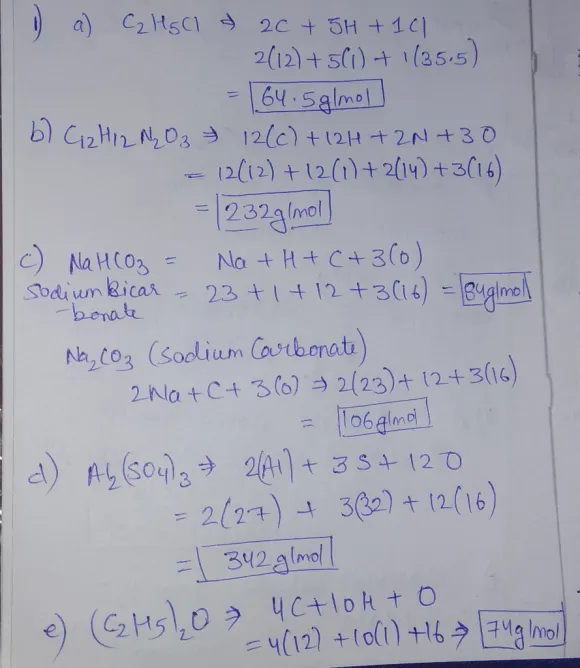 1) a) C₂H₅Cl ⇒ 2C + 5H + 1Cl
2(12) + 5(1) + 1(35.5)
= 64.5g/mol
b) C₁₂H₁₂N₂O₃ ⇒ 12(C) + 12H + 2N + 3O
= 12(12) + 12(1) + 2(14) + 3(16)
= 232g/mol
c) NaHCO₃ = Na + H + C + 3(O)
Sodium Bicar = 23 + 1 + 12 + 3(16) = 84g/mol
-bonate
Na₂CO₃ (Sodium Carbonate)
2Na + C + 3(O) ⇒ 2(23) + 12 + 3(16)
= 106g/mol
d) Al₂(SO₄)₃ ⇒ 2(Al) + 3S + 12O
= 2(27) + 3(32) + 12(16)
= 342g/mol
e) (C₂H₅)₂O ⇒ 4C + 10H + O
= 4(12) + 10(1) + 16 ⇒ 74g/mol